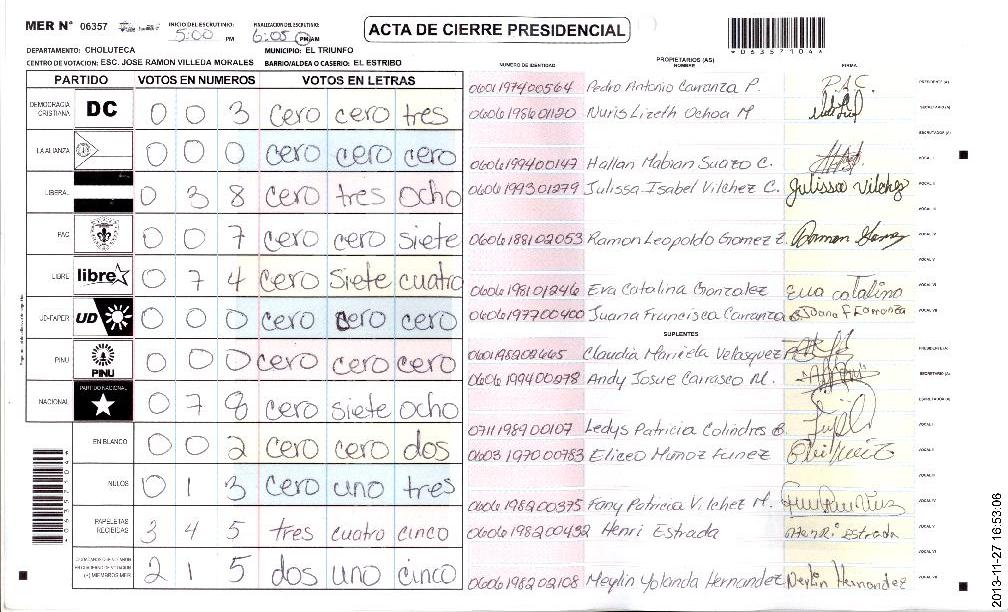 MER N° 06357
INICIO DEL ESCRUTINIO: 5:00 PM
FINALIZACION DEL ESCRUTINIO: 6:05 PM AM
ACTA DE CIERRE PRESIDENCIAL
*06357104*
DEPARTAMENTO: CHOLUTECA
MUNICIPIO: EL TRIUNFO
CENTRO DE VOTACION: ESC. JOSE RAMON VILLEDA MORALES
BARRIO/ALDEA O CASERIO: EL ESTRIBO
PARTIDO VOTOS EN NUMEROS VOTOS EN LETRAS
DEMOCRACIA CRISTIANA DC 0 0 3 cero cero tres
LA ALIANZA 0 0 0 cero cero cero
LIBERAL 0 3 8 cero tres ocho
PAC 0 0 7 cero cero siete
LIBRE libre 0 7 4 cero siete cuatro
UD-FAPER UD 0 0 0 cero cero cero
PINU PINU 0 0 0 cero cero cero
NACIONAL PARTIDO NACIONAL 0 7 8 cero siete ocho
EN BLANCO 0 0 2 cero cero dos
NULOS 0 1 3 cero uno tres
PAPELETAS RECIBIDAS 3 4 5 tres cuatro cinco
(+) MIEMBROS MER 2 1 5 dos uno cinco
NUMERO DE IDENTIDAD PROPIETARIOS (AS) NOMBRE FIRMA
0601197400564 Pedro Antonio Carranza P. P.A.C. PRESIDENTE (A)
0606198601120 Nuris Lizeth Ochoa M SECRETARIO (A)
ESCRUTADOR (A)
0606199400147 Hallan Mabian Suazo C. VOCAL I
0606199301279 Julissa Isabel Vilchez C. Julissa Vilchez VOCAL II
VOCAL III
0606188102053 Ramon Leopoldo Gomez Z. Ramon Gomez VOCAL IV
VOCAL V
0606198101246 Eva Catalina Gonzalez Eva Catalina VOCAL VI
0606197700400 Juana Francisca Carranza Juana F Carranza VOCAL VII
SUPLENTES
0601198202665 Claudia Mariela Velasquez PRESIDENTE (A)
0606199400278 Andy Josue Carrasco M. SECRETARIO (A)
ESCRUTADOR (A)
0711198900107 Ledys Patricia Colindres B. VOCAL I
0603197000783 Eliceo Muñoz Funez VOCAL II
0606198200375 Fany Patricia Vilchez M. VOCAL IV
0606198200432 Henri Estrada Henri Estrada VOCAL V
VOCAL VI
0606198202108 Meylin Yolanda Hernandez Meylin Hernandez VOCAL VII
*06357104*
2013-11-27 16:53:06